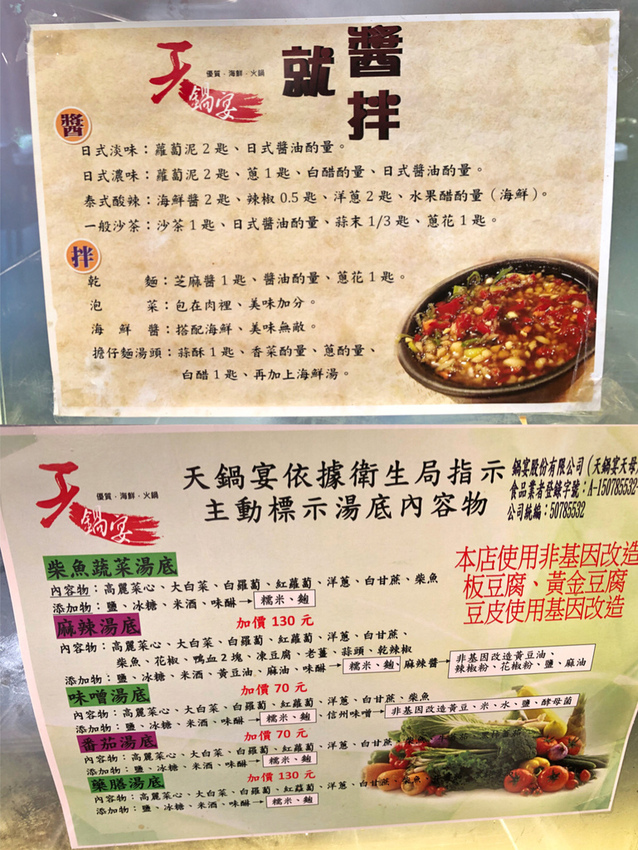 天鍋宴
優質．海鮮．火鍋
就醬拌
醬
日式淡味：蘿蔔泥2匙、日式醬油酌量。
日式濃味：蘿蔔泥2匙、蔥1匙、白醋酌量、日式醬油酌量。
泰式酸辣：海鮮醬2匙、辣椒0.5匙、洋蔥2匙、水果醋酌量（海鮮）。
一般沙茶：沙茶1匙、日式醬油酌量、蒜末1/3匙、蔥花1匙。
拌
乾麵：芝麻醬1匙、醬油酌量、蔥花1匙。
泡菜：包在肉裡、美味加分。
海鮮醬：搭配海鮮、美味無敵。
擔仔麵湯頭：蒜酥1匙、香菜酌量、蔥酌量、
白醋1匙、再加上海鮮湯。
天鍋宴
優質．海鮮．火鍋
天鍋宴依據衛生局指示
主動標示湯底內容物
鍋宴股份有限公司（天鍋宴天母
食品業者登錄字號：A-150785532
公司統編：50785532
本店使用非基因改造
板豆腐、黃金豆腐
豆皮使用基因改造
柴魚蔬菜湯底
內容物：高麗菜心、大白菜、白蘿蔔、紅蘿蔔、洋蔥、白甘蔗、柴魚
添加物：鹽、冰糖、米酒、味醂→糯米、麴
麻辣湯底 加價130元
內容物：高麗菜心、大白菜、白蘿蔔、紅蘿蔔、洋蔥、白甘蔗、
柴魚、花椒、鴨血2塊、凍豆腐、老薑、蒜頭、乾辣椒
添加物：鹽、冰糖、米酒、黃豆油、麻油、味醂→糯米、麴、麻辣醬→非基因改造黃豆油、辣椒粉、花椒粉、鹽、麻油
味噌湯底 加價70元
內容物：高麗菜心、大白菜、白蘿蔔、紅蘿蔔、洋蔥、白甘蔗、柴魚
添加物：鹽、冰糖、米酒、味醂→糯米、麴 信州味噌→非基因改造黃豆、米、水、鹽、酵母菌
番茄湯底 加價70元
內容物：高麗菜心、大白菜、白蘿蔔、紅蘿蔔、洋蔥、白甘蔗
添加物：鹽、冰糖、米酒、味醂→糯米、麴
藥膳湯底 加價130元
內容物：高麗菜心、大白菜、白蘿蔔、紅蘿蔔、洋蔥、白甘蔗、柴魚
添加物：鹽、冰糖、米酒、味醂→糯米、麴